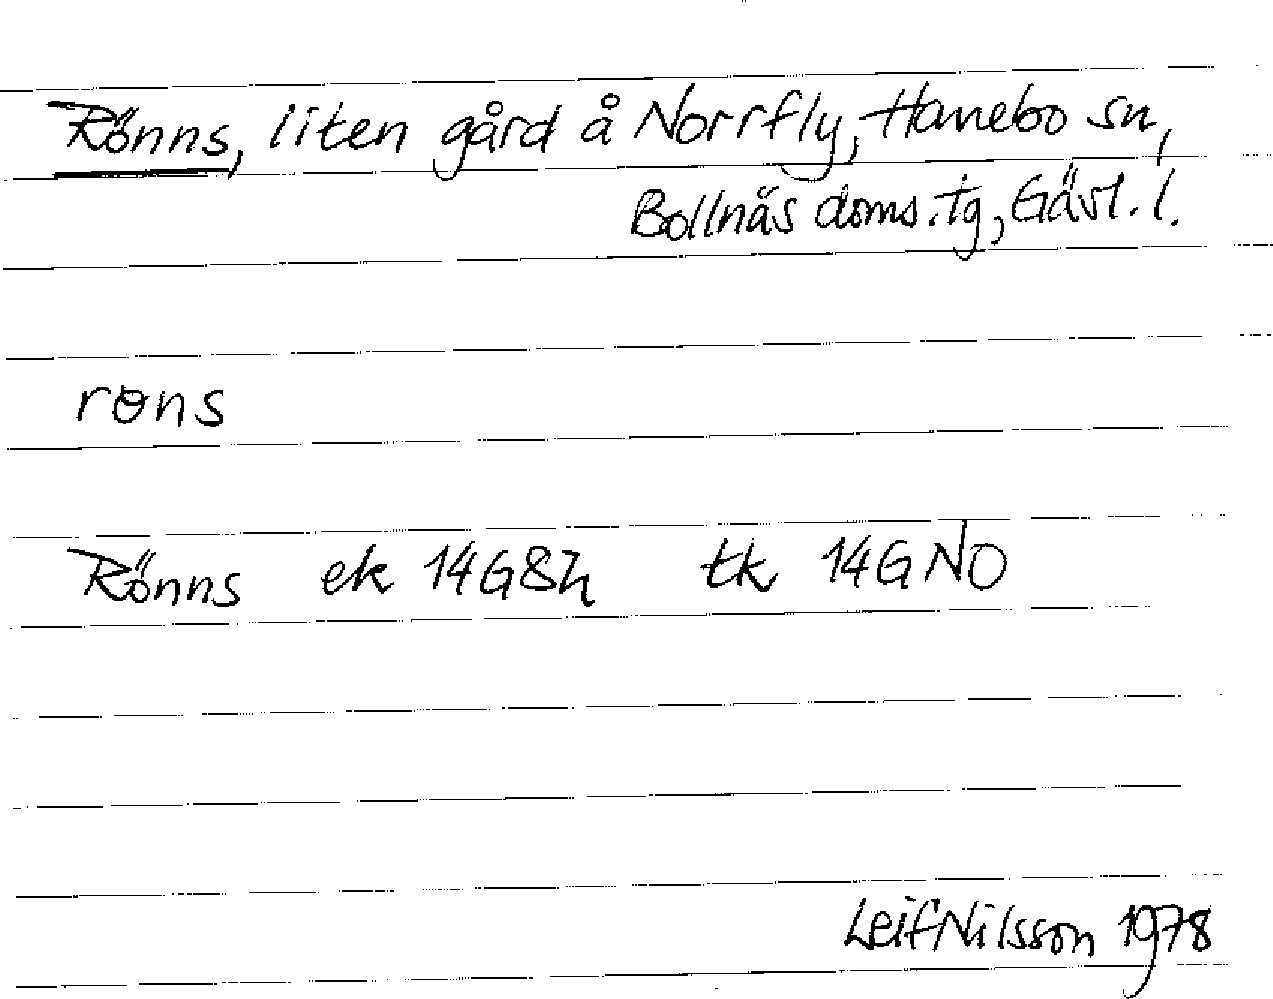 Rönns, liten gård å Norrfly, Hanebo sn,
Bollnäs doms.tg, Gävl.l.
rɵns
Rönns ek 14G8h tk 14GNO
Leif Nilsson 1978